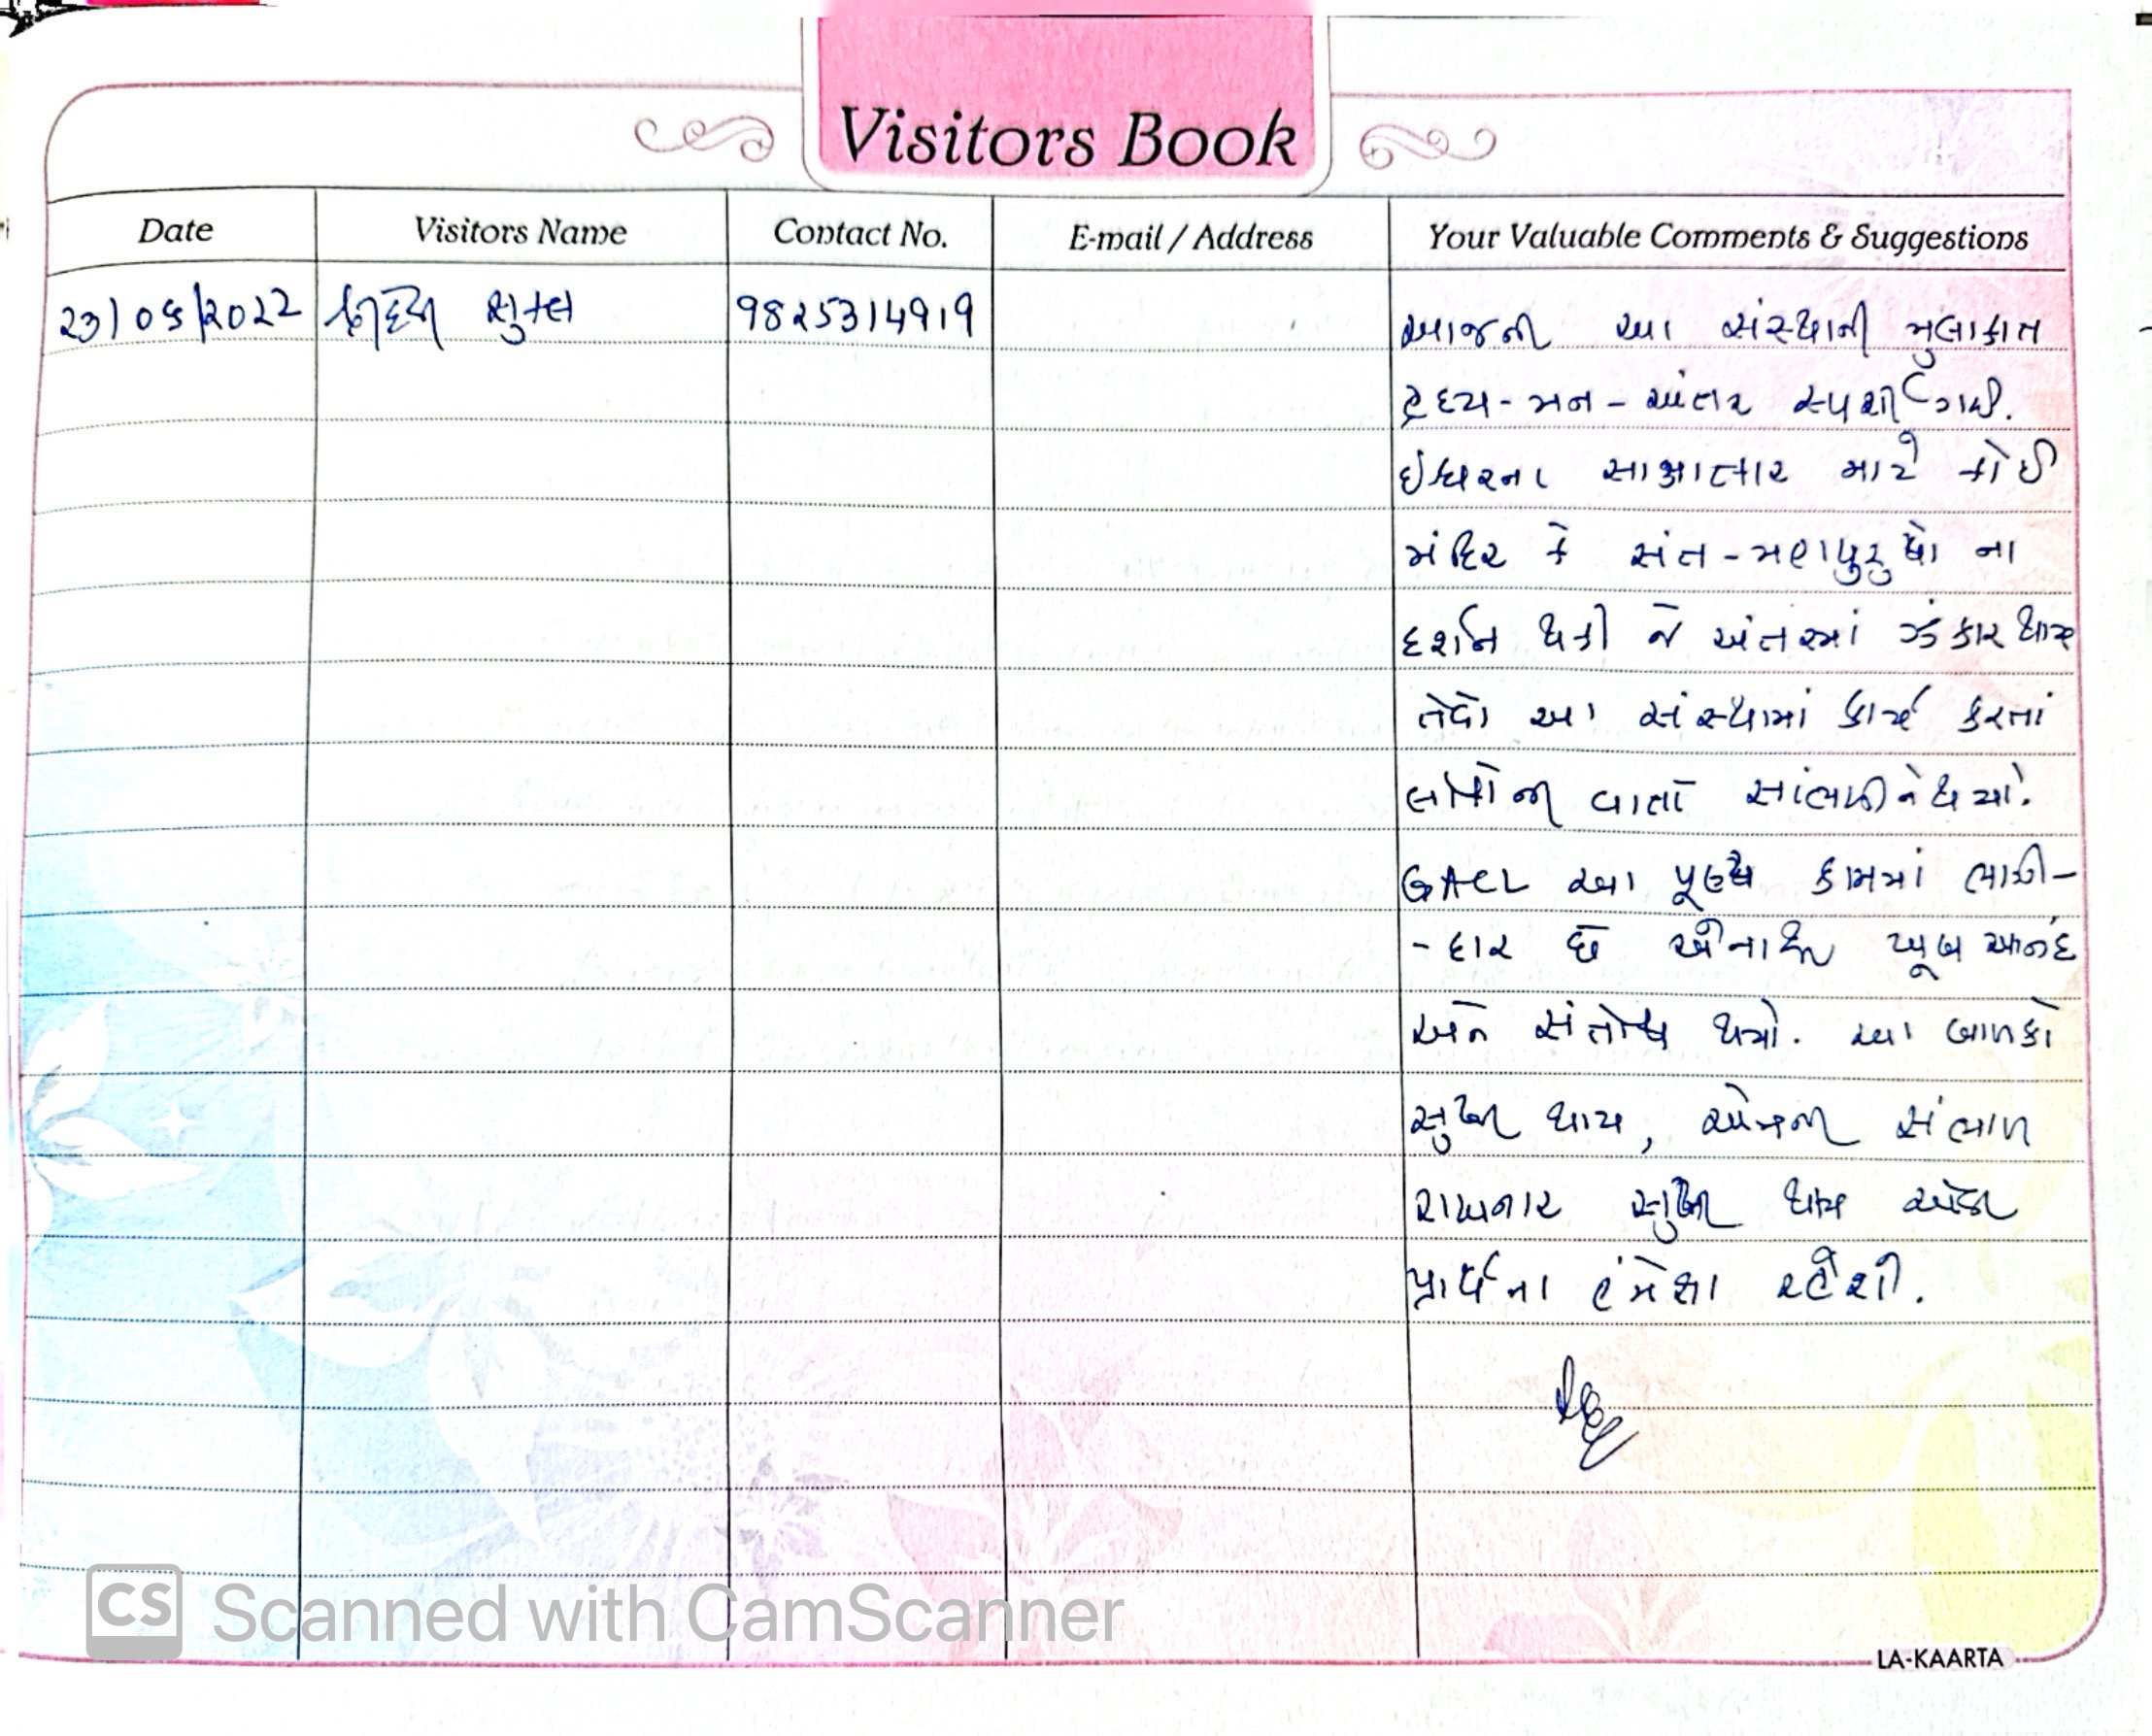 Visitors Book
Date Visitors Name Contact No. E-mail / Address Your Valuable Comments & Suggestions
23/05/2022 શુક્લ 9825314919 આજની આ સંસ્થાની મુલાકાત
હ્રદય-મન-અંતર સ્પર્શી ગઈ.
ઈશ્વરના સાક્ષાત્કાર માટે કોઈ
મંદિર કે સંત-મહાપુરુષો ના
દર્શન થકી જે અંતરમાં ઝંકાર થાય
તેવો આ સંસ્થામાં કાર્ય કરતાં
લોકોની વાતો સાંભળીને થયો.
GACL આ કામમાં ભાગી-
-દાર છે એનાથી ખૂબ આનંદ
અને સંતોષ થયો. આ બાળકો
સુખી થાય, એમની સંભાળ
રાખનાર સુખી થાય એવી
પ્રાર્થના હંમેશા રહેશે.
CS Scanned with CamScanner
LA-KAARTA